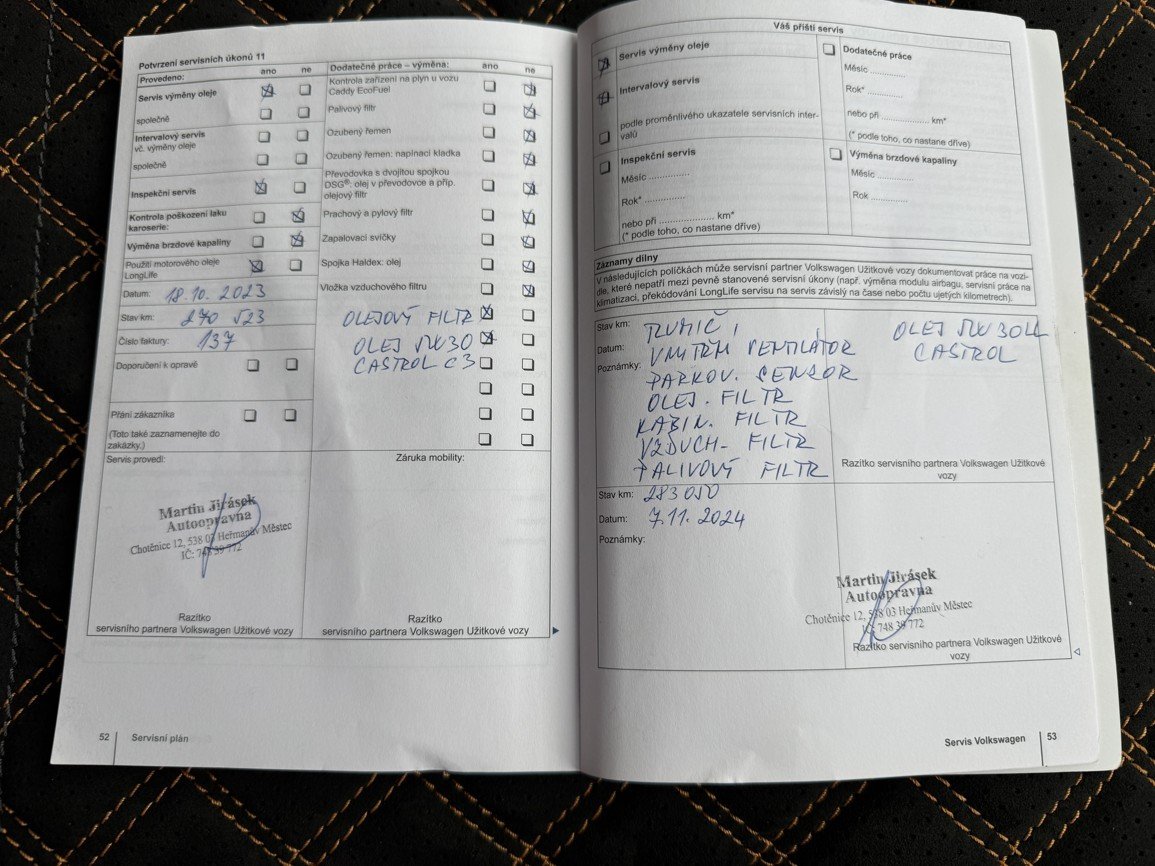 Potvrzení servisních úkonů 11
Provedeno: ano ne
Servis výměny oleje
společně
Intervalový servis
vč. výměny oleje
společně
Inspekční servis
Kontrola poškození laku
karoserie:
Výměna brzdové kapaliny
Použití motorového oleje
LongLife
Datum: 18.10. 2023
Stav km: 270 523
Číslo faktury: 137
Doporučení k opravě
Přání zákazníka
(Toto také zaznamenejte do
zakázky.)
Servis provedl:
Martin Jirásek
Autoopravna
Chotěnice 12, 538 03 Heřmanův Městec
IČ: 748 39 772
Razítko
servisního partnera Volkswagen Užitkové vozy
Dodatečné práce – výměna: ano ne
Kontrola zařízení na plyn u vozu
Caddy EcoFuel
Palivový filtr
Ozubený řemen
Ozubený řemen: napínací kladka
Převodovka s dvojitou spojkou
DSG®: olej v převodovce a příp.
olejový filtr
Prachový a pylový filtr
Zapalovací svíčky
Spojka Haldex: olej
Vložka vzduchového filtru
OLEJOVÝ FILTR
OLEJ 5W30
CASTROL C3
Záruka mobility:
Razítko
servisního partnera Volkswagen Užitkové vozy
52 Servisní plán
Váš příští servis
Servis výměny oleje
Intervalový servis
podle proměnlivého ukazatele servisních inter-
valů
Inspekční servis
Měsíc ...............
Rok* ...............
nebo při .................... km*
(* podle toho, co nastane dříve)
Dodatečné práce
Měsíc .............
Rok* .............
nebo při .................. km*
(* podle toho, co nastane dříve)
Výměna brzdové kapaliny
Měsíc .............
Rok .............
Záznamy dílny
V následujících políčkách může servisní partner Volkswagen Užitkové vozy dokumentovat práce na vozi-
dle, které nepatří mezi pevně stanovené servisní úkony (např. výměna modulu airbagu, servisní práce na
klimatizaci, překódování LongLife servisu na servis závislý na čase nebo počtu ujetých kilometrech).
Stav km: TLUMIČ,
Datum: VNITŘNÍ VENTILÁTOR
Poznámky: PARKOV. SENSOR
OLEJ. FILTR
KABIN. FILTR
VZDUCH- FILTR
PALIVOVÝ FILTR
OLEJ 5W30LL
CASTROL
Razítko servisního partnera Volkswagen Užitkové
vozy
Stav km: 283050
Datum: 7.11. 2024
Poznámky:
Martin Jirásek
Autoopravna
Chotěnice 12, 538 03 Heřmanův Městec
IČ: 748 39 772
Razítko servisního partnera Volkswagen Užitkové
vozy
Servis Volkswagen 53